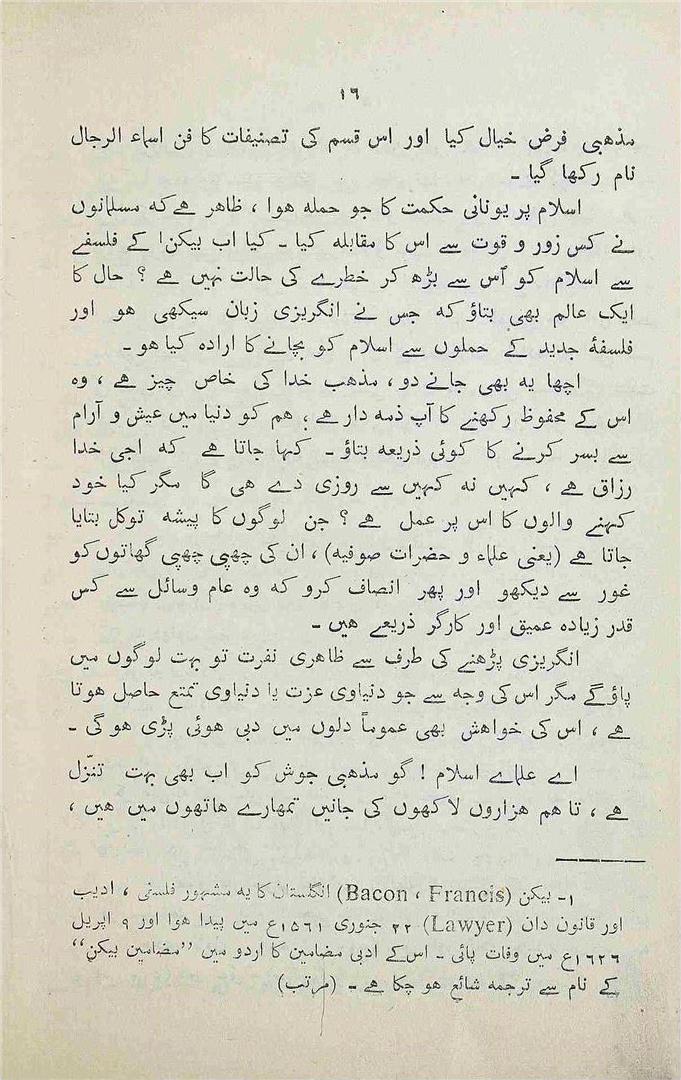 ١٦
مذهبی فرض خیال کیا اور اس قسم کی تصنیفات کا فن اسماء الرجال
نام رکھا گیا ۔
اسلام پر یونانی حکمت کا جو حملہ ہوا ، ظاہر ہے کہ مسلمانوں
نے کس زور و قوت سے اس کا مقابلہ کیا ۔ کیا اب بیکن۱ کے فلسفے
سے اسلام کو اُس سے بڑھ کر خطرے کی حالت نہیں ہے ؟ حال کا
ایک عالم بھی بتاؤ کہ جس نے انگریزی زبان سیکھی ہو اور
فلسفۂ جدید کے حملوں سے اسلام کو بچانے کا ارادہ کیا ہو ۔
اچھا یہ بھی جانے دو ، مذہب خدا کی خاص چیز ہے ، وہ
اس کے محفوظ رکھنے کا آپ ذمہ دار ہے ، ہم کو دنیا میں عیش و آرام
سے بسر کرنے کا کوئی ذریعہ بتاؤ ۔ کہا جاتا ہے کہ اجی خدا
رزاق ہے ، کہیں نہ کہیں سے روزی دے ہی گا مگر کیا خود
کہنے والوں کا اس پر عمل ہے ؟ جن لوگوں کا پیشہ توکل بتایا
جاتا ہے (یعنی علماء و حضرات صوفیہ) ، ان کی چھپی چھپی گھاتوں کو
غور سے دیکھو اور پھر انصاف کرو کہ وہ عام وسائل سے کس
قدر زیادہ عمیق اور کارگر ذریعے ہیں ۔
انگریزی پڑھنے کی طرف سے ظاہری نفرت تو بہت لوگوں میں
پاؤ گے مگر اس کی وجہ سے جو دنیاوی عزت یا دنیاوی تمتع حاصل ہوتا
ہے ، اس کی خواہش بھی عموماً دلوں میں دبی ہوئی پڑی ہو گی ۔
اے علماے اسلام ! گو مذہبی جوش کو اب بھی بہت تنزّل
ہے ، تاہم ہزاروں لاکھوں کی جانیں تمہارے ہاتھوں میں ہیں ،
۱۔ بیکن (Bacon ، Francis) انگلستان کا یہ مشہور فلسفی ، ادیب
اور قانون دان (Lawyer) ۲۲ جنوری ۱۵۶۱ع میں پیدا ہوا اور ۹ اپریل
۱۶۲۶ع میں وفات پائی ۔ اس کے ادبی مضامین کا اردو میں ”مضامین بیکن“
کے نام سے ترجمہ شائع ہو چکا ہے ۔ (مرتب)